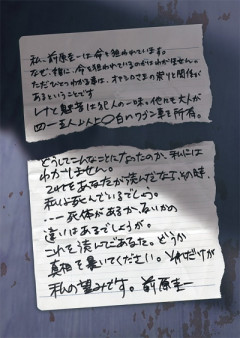 私、前原圭一は命を狙われています。
なぜ、誰に、命を狙われているのかはわかりません。
ただひとつわかる事は、オヤシロさまの祟りと関係が
あるということです
レナと魅音は犯人の一味。他にも大人が
四〜五人以上。白のワゴン車を所有。
どうしてこんなことになったのか、私には
わかりません。
これをあなたが読んだなら、その時、
私は死んでいるでしょう。
…死体があるか、ないかの
違いはあるでしょうが。
これを読んだあなた。どうか
真相を暴いてください。それだけが
私の望みです。 前原圭一